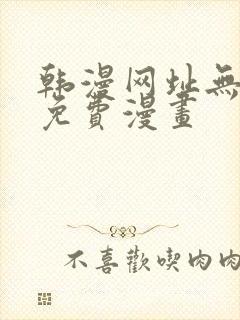 韩漫网址無
免費漫畫
不喜歡喫肉肉